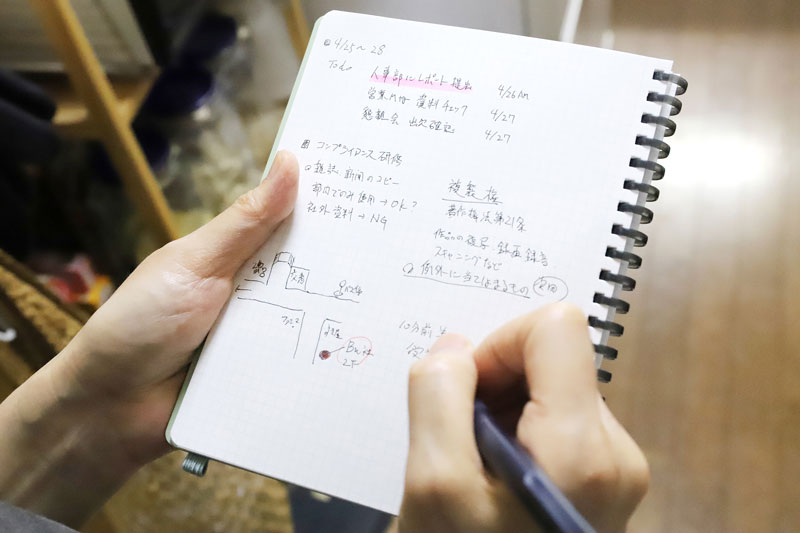 4/25〜28
Todo
人事部にレポート提出 4/26 AM
営業Mtg 資料チェック 4/27
懇親会 出欠確認 4/27
コンプライアンス研修
雑誌・新聞のコピー
部内でのみ使用→OK?
社外資料→NG
複製権
著作権法第21条
作品の複写・録画録音
スキャニングなど
例外に当てはまるもの
10分前
2F